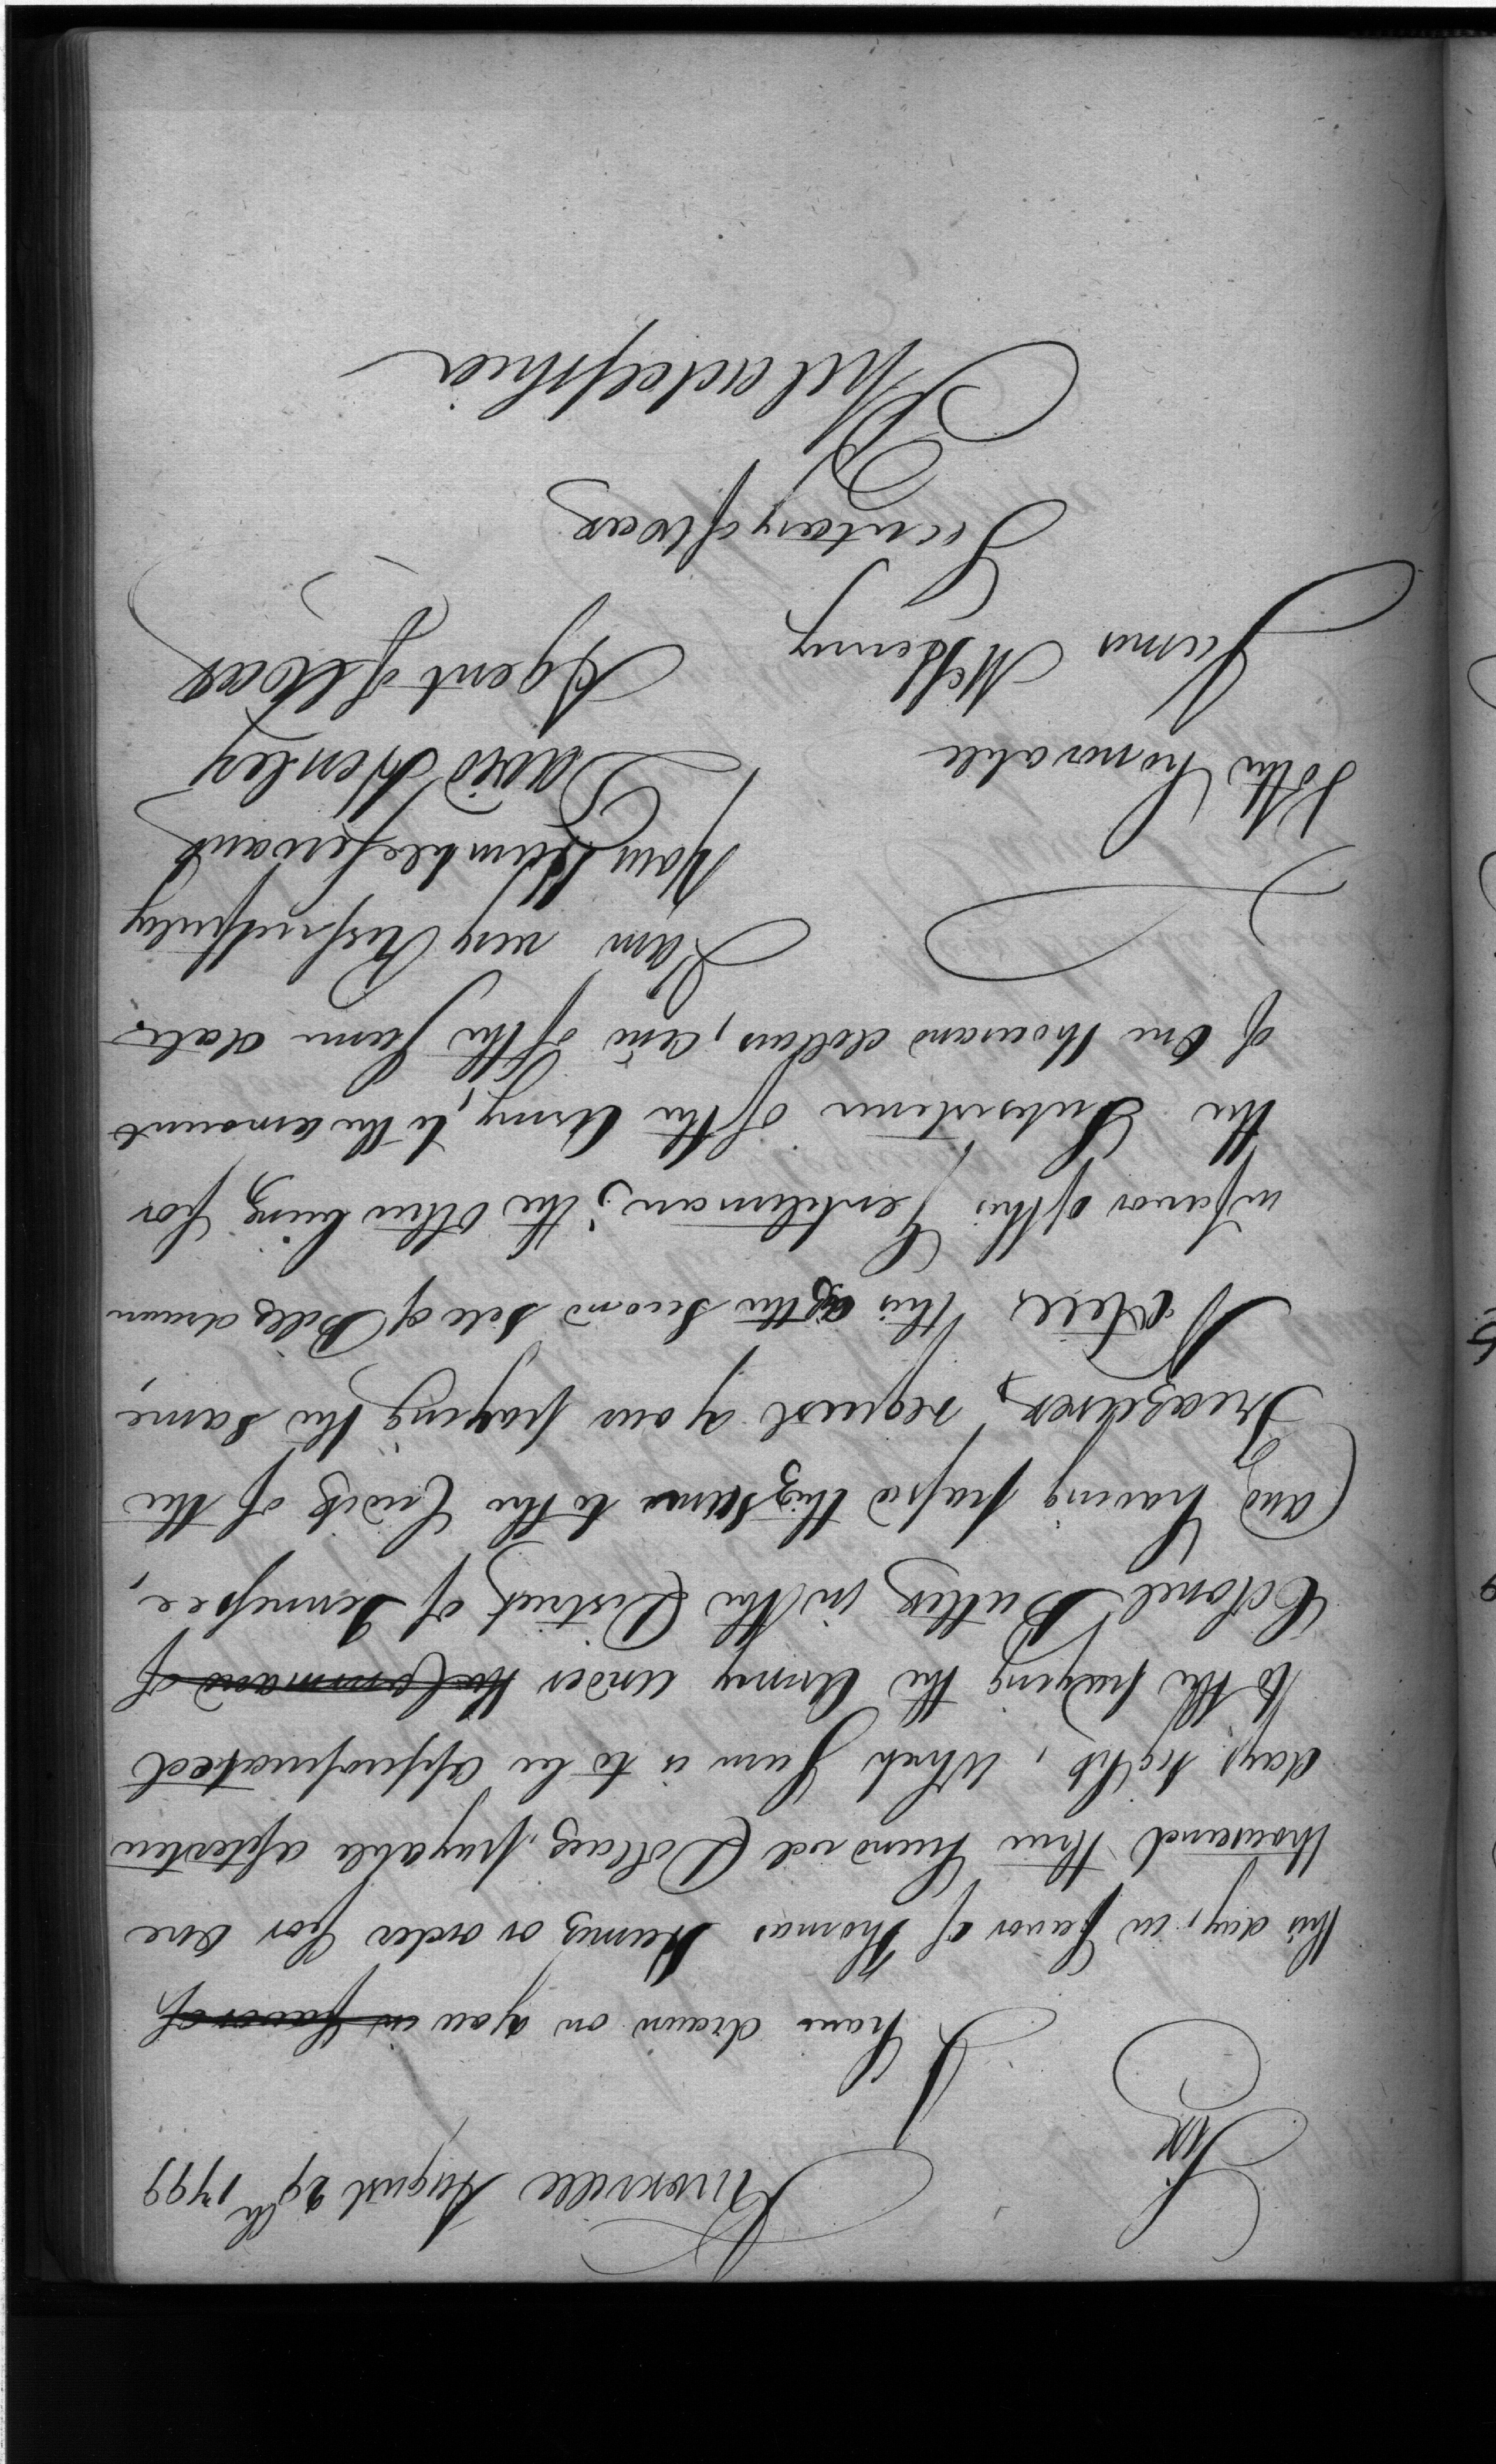 Knoxville August 29th 1799
Sir
I have drawn on you in favor of
this day, in favor of Thomas Harris or order for One
thousand three hundred Dollars, payable after ten
days sight, which Sum is to be appropriated
to the paying the Army under the Command of
Colonel Butler in the District of Tennessee,
and having passed this sum to the Credit of the
Treasurer, request your paying the same,
Note this is the Second Sett of Bills drawn
in favor of this Gentleman; the other being for
the Subsistence of the Army, to the amount
of One thousand dollars, and of the same date.
I am very Respectfully
Your Humble Servant
David Henley
Agent of War
To the honorable
James McHenry
Secretary of War
Philadelphia